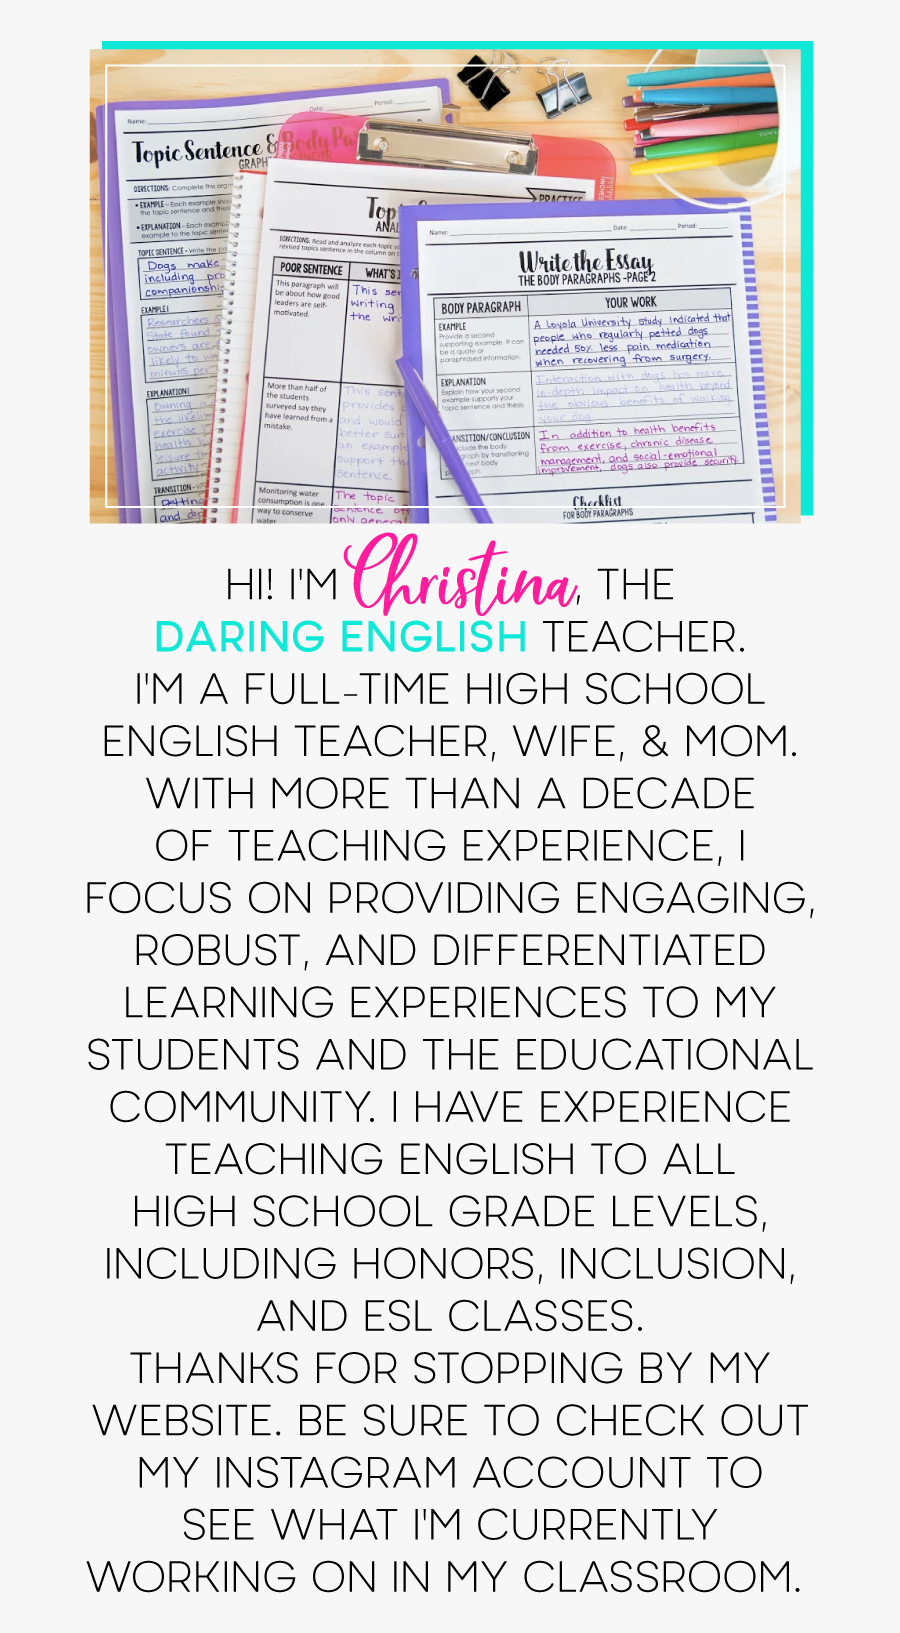 Name:
Date:
Period:
Topic Sentence & Body Pa
GRAPH
DIRECTIONS: Complete the org
• EXAMPLE - Each example shou
the topic sentence and thes
• EXPLANATION - Each examp
example to the topic senten
TOPIC SENTENCE - Write the
Dogs make
including pro
companionshi
EXAMPLE 1
Researchers
State found
owners are
likely to w
minutes per
EXPLANATION 1
Owning a
the likeli
exercise
health
leisure
activity
TRANSITION -
Petting
and dep
PRACTICE
Top
ANAL
DIRECTIONS: Read and analyze each topic se
revised topics sentence in the column on t
POOR SENTENCE
WHAT'S
This paragraph will
be about how good
leaders are self-
motivated.
This ser
writing
the wri
More than half of
the students
surveyed say they
have learned from a
mistake.
This sent
provides
and would
better sui
an example
support th
sentence.
Monitoring water
consumption is one
way to conserve
water.
The topic
sentence of
only genera
Name:
Date:
Period:
Write the Essay
THE BODY PARAGRAPHS -PAGE 2
BODY PARAGRAPH
YOUR WORK
EXAMPLE
Provide a second
supporting example. It can
be a quote or
paraphrased information.
A Loyola University study indicated that
people who regularly petted dogs
needed 50% less pain medication
when recovering from surgery.
EXPLANATION
Explain how your second
example supports your
topic sentence and thesis.
Interaction with dogs has more
in-depth impact on health beyond
the obvious benefits of walking
your dog.
ANSITION/CONCLUSION
clude the body
graph by transitioning
next body
In addition to health benefits
from exercise, chronic disease
management, and social-emotional
improvement, dogs also provide security.
Checklist
FOR BODY PARAGRAPHS
HI! I'M Christina, THE
DARING ENGLISH TEACHER.
I'M A FULL-TIME HIGH SCHOOL
ENGLISH TEACHER, WIFE, & MOM.
WITH MORE THAN A DECADE
OF TEACHING EXPERIENCE, I
FOCUS ON PROVIDING ENGAGING,
ROBUST, AND DIFFERENTIATED
LEARNING EXPERIENCES TO MY
STUDENTS AND THE EDUCATIONAL
COMMUNITY. I HAVE EXPERIENCE
TEACHING ENGLISH TO ALL
HIGH SCHOOL GRADE LEVELS,
INCLUDING HONORS, INCLUSION,
AND ESL CLASSES.
THANKS FOR STOPPING BY MY
WEBSITE. BE SURE TO CHECK OUT
MY INSTAGRAM ACCOUNT TO
SEE WHAT I'M CURRENTLY
WORKING ON IN MY CLASSROOM.